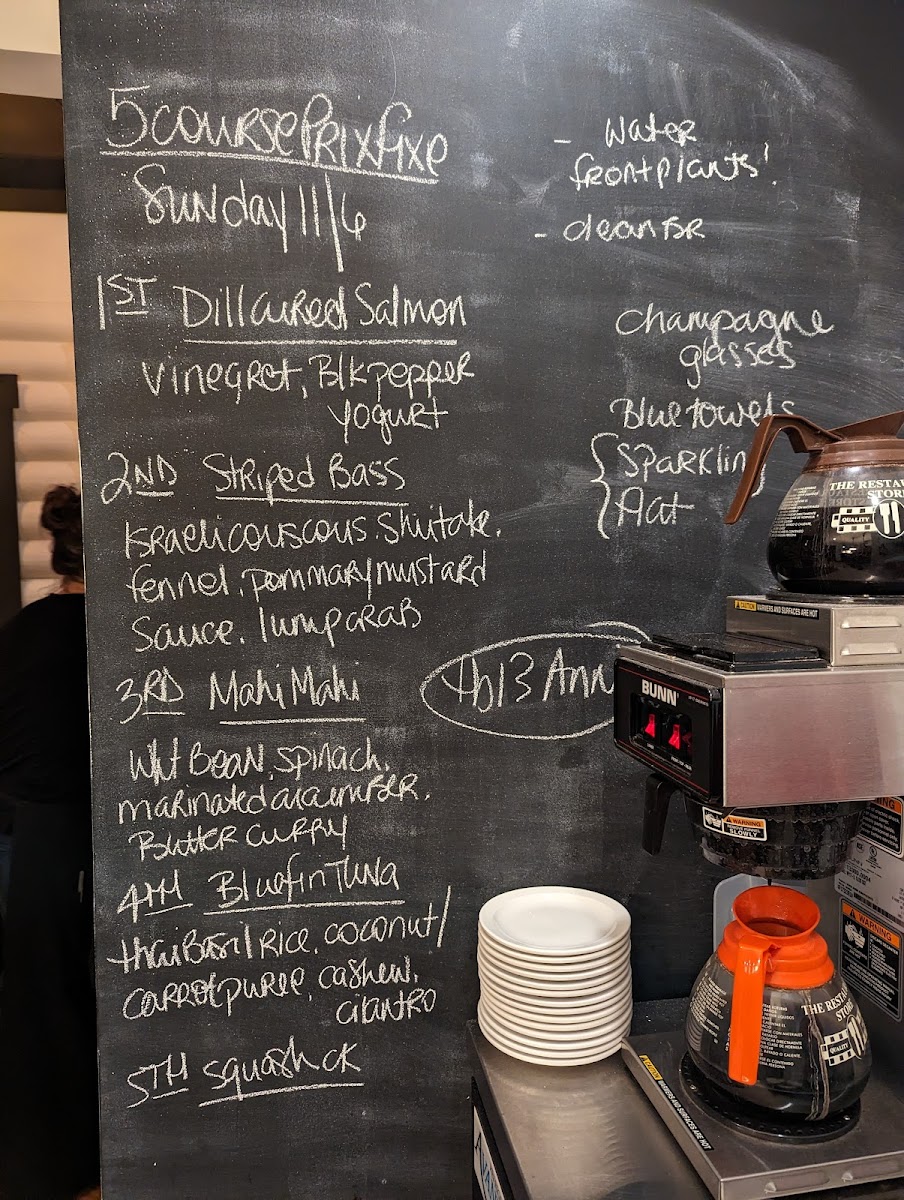 5 course Prix fixe
Sunday 11/6
1ST Dill cured Salmon
vinegret, Blk pepper
yogurt
2ND Striped Bass
Israeli couscous. Shiitake.
fennel. pommary mustard
Sauce. lump crab
3RD Mahi Mahi
Wht Bean. spinach.
marinated cucumber.
Butter curry
4TH Bluefin Tuna
thai Basil Rice. coconut/
carrot puree. cashew.
cilantro
5TH Squash ck
- Water
front plants!
- clean BR
champagne
glasses
Blue towels
Sparkling
flat
tbl 3 Ann
THE RESTAU
STORE
QUALITY
CAUTION WARMERS AND SURFACES ARE HOT
BUNN
WARNING
SLOWLY
WARNING
WARNING
THE RESTA
STOR
QUALITY
CAUTION WARMERS AND SURFACES ARE HOT